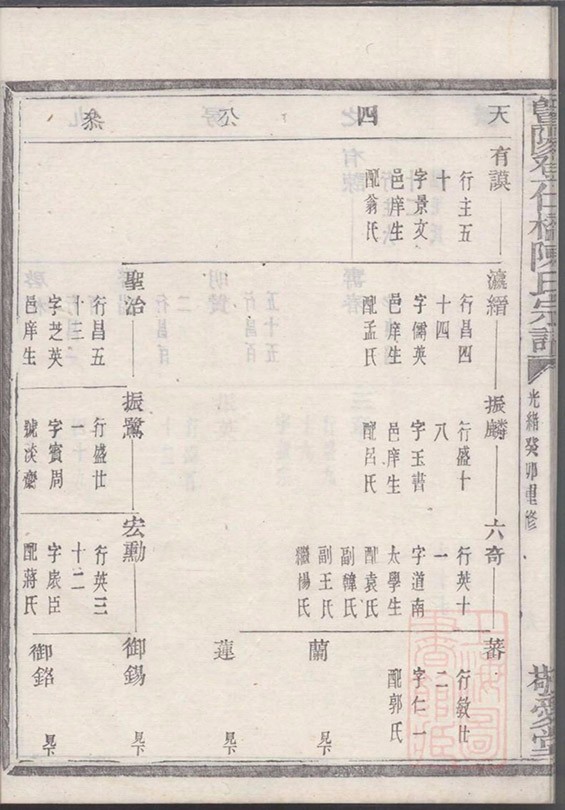 暨陽孝仁橋陳氏宗譜
光緒癸卯重修
敬愛堂
天四公叅
有謨
行主五
十
字景文
邑庠生
配翁氏
瀛縉
行昌四
十四
字儒英
邑庠生
配孟氏
振麟
行盛十
八
字玉書
邑庠生
配呂氏
六奇
行英十
一
字道南
太學生
配袁氏
副韓氏
副王氏
繼楊氏
蕃
行敘廿
二
字仁一
配郭氏
蘭
見下
蓮
見下
聖治
行昌五
十三
字芝英
邑庠生
振鷺
行盛廿
一
字賓周
號淡齋
宏勳
行英三
十二
字虞臣
配蔣氏
御錫
見下
御銘
見下
上海圖書館藏